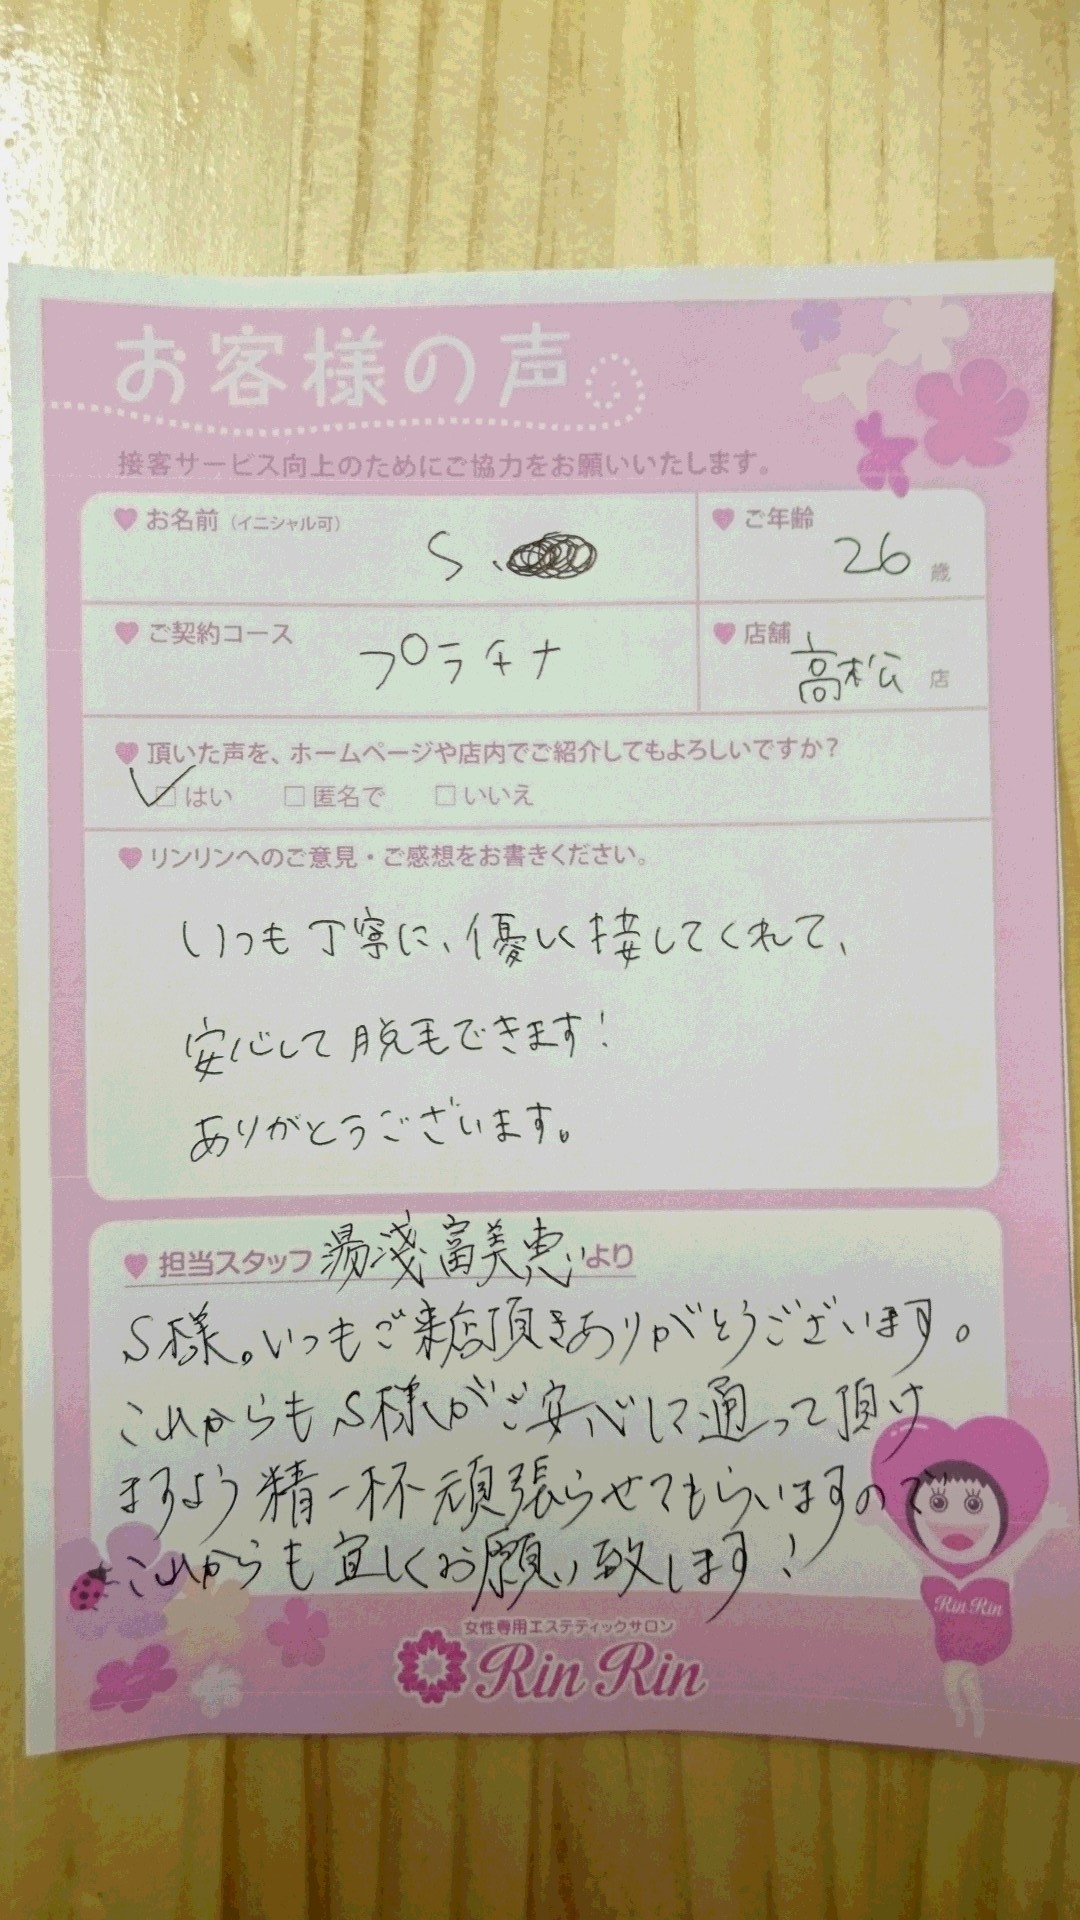 お客様の声。
接客サービス向上のためにご協力をお願いいたします。
お名前（イニシャル可）
S.
ご年齢
26 歳
ご契約コース
プラチナ
店舗
高松 店
頂いた声を、ホームページや店内でご紹介してもよろしいですか？
はい 匿名で いいえ
リンリンへのご意見・ご感想をお書きください。
いつも丁寧に、優しく接してくれて、
安心して脱毛できます！
ありがとうございます。
担当スタッフ 湯淺富美恵より
S様。いつもご来店頂きありがとうございます。
これからもS様がご安心して通って頂け
ますよう精一杯頑張らせてもらいますので
これからも宜しくお願い致します！
Rin Rin
女性専用エステティックサロン
Rin Rin